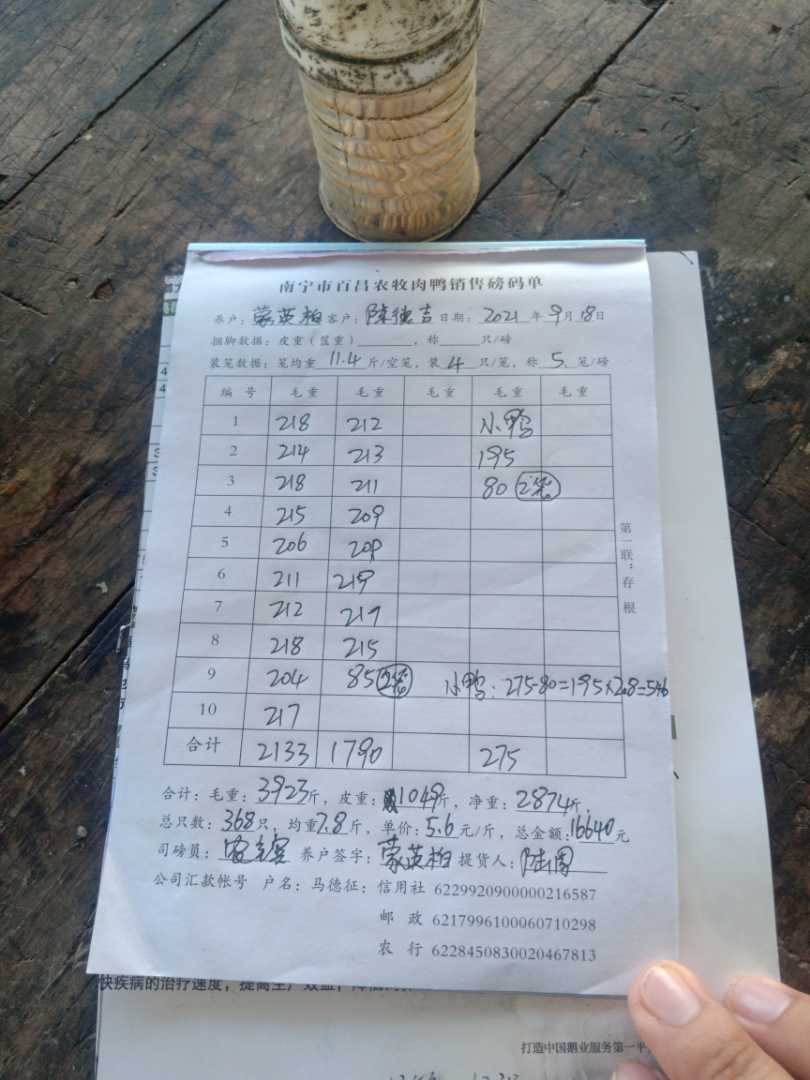 南宁市百昌农牧肉鸭销售磅码单
养户：蒙英柏 客户：陆德吉 日期：2021年9月18日
捆脚数据：皮重（筐重）______，称____只/磅
装笼数据：笼均重 11.4 斤/空笼，装 4 只/笼，称 5. 笼/磅
编 号 毛 重 毛 重 毛 重 毛 重 毛 重
1 218 212 小鸭
2 214 213 195
3 218 211 80
4 215 209
5 206 209
6 211 219
7 212 217
8 218 215
9 204 85 小鸭：275-80=195×2.8=546
10 217
合计 2133 1790 275
合计：毛重：3923斤，皮重：1049斤，净重：2874斤，
总只数：368只，均重7.8斤，单价：5.6元/斤，总金额：16640元
司磅员： 养户签字：蒙英柏 提货人：
公司汇款帐号 户名：马德征：信用社 6229920900000216587
邮 政 6217996100060710298
农 行 6228450830020467813
第一联：存根
快疾病的治疗速度，提高生产效益，
打造中国鹅业服务第一平